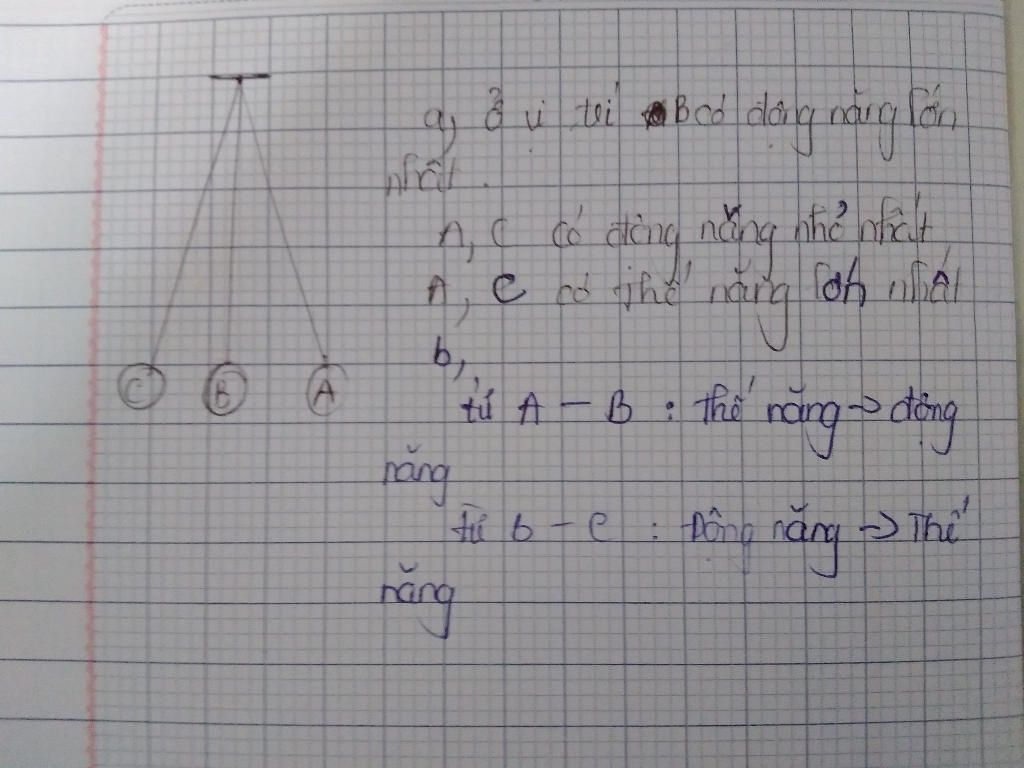 a, ở vị trí B có động năng lớn
nhất.
A, C có động năng nhỏ nhất
A, C có thế năng lớn nhất
b,
từ A - B : thế năng -> động
năng
từ b - C : Động năng -> Thế
năng
C B A